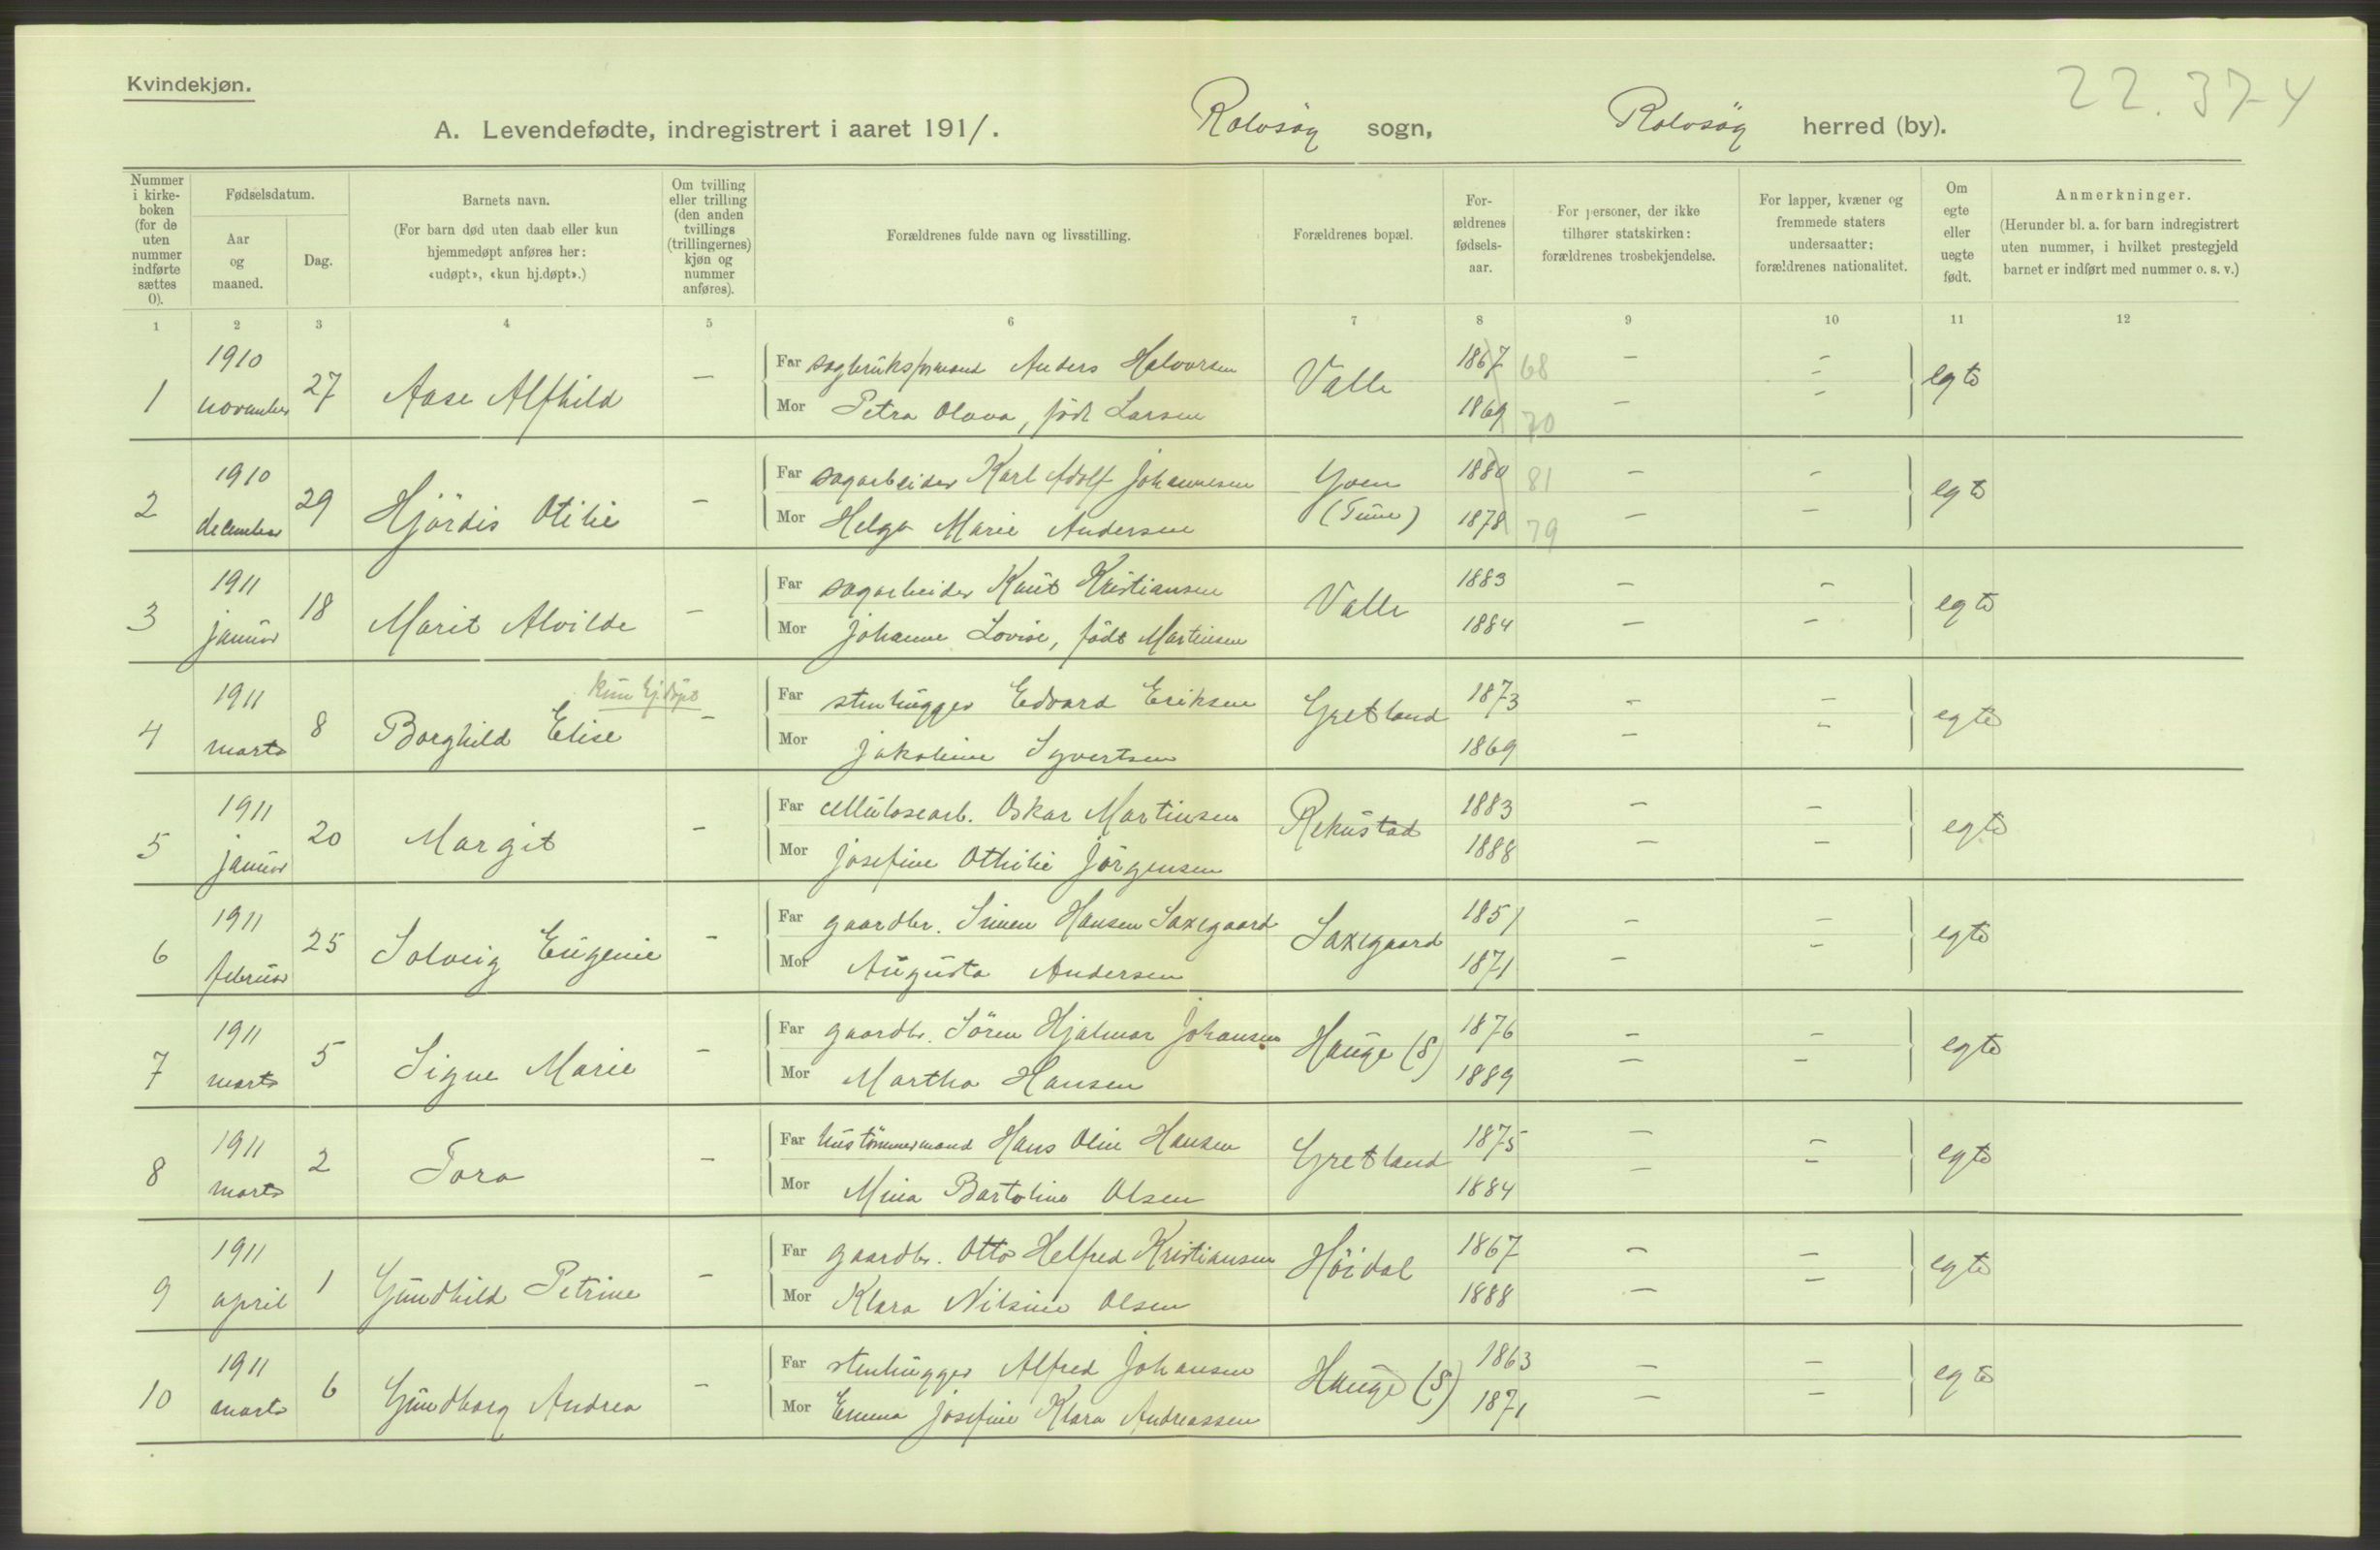 Kvindekjøn.
22. 374
A. Levendefødte, indregistrert i aaret 1911. Rolvsöy sogn, Rolvsöy herred (by).
Nummer i kirkeboken (for de uten nummer indførte sættes 0).
Fødselsdatum.
Aar og maaned.
Dag.
Barnets navn.
(For barn død uten daab eller kun hjemmedøpt anføres her: «udøpt», «kun hj.døpt».)
Om tvilling eller trilling (den anden tvillings (trillingernes) kjøn og nummer anføres).
Forældrenes fulde navn og livsstilling.
Forældrenes bopæl.
For-ældrenes fødsels-aar.
For personer, der ikke tilhører statskirken: forældrenes trosbekjendelse.
For lapper, kvæner og fremmede staters undersaatter: forældrenes nationalitet.
Om egte eller uegte født.
Anmerkninger.
(Herunder bl. a. for barn indregistrert uten nummer, i hvilket prestegjeld barnet er indført med nummer o. s. v.)
1 2 3 4 5 6 7 8 9 10 11 12
1 1910 november 27 Aase Alfhild – Far sagbruksformand Anders Halvorsen Valle 1867 68 – – egte
Mor Petra Olava, født Larsen 1869 70 – –
2 1910 december 29 Hjördis Otilie – Far sagarbeider Karl Adolf Johannesen Yven (Tune) 1880 81 – – egte
Mor Helga Marie Andersen 1878 79 – –
3 1911 januar 18 Marit Alvilde – Far sagarbeider Knut Kristiansen Valle 1883 – – egte
Mor Johanne Lovise, født Martinsen 1884 – –
4 1911 marts 8 Borghild Elise kun hj.döpt – Far stenhugger Edvard Eriksen Gretland 1873 – – egte
Mor Jakobine Syvertsen 1869 – –
5 1911 januar 20 Margit – Far cellulosearb. Oskar Martinsen Rekustad 1883 – – egte
Mor Josefine Othilie Jörgensen 1888 – –
6 1911 februar 25 Solveig Eugenie – Far gaardbr. Simen Hansen Saxegaard Saxegaard 1851 – – egte
Mor Augusta Andersen 1871 – –
7 1911 marts 5 Signe Marie – Far gaardbr. Sören Hjalmar Johansen Hauge (S) 1876 – – egte
Mor Martha Hansen 1889 – –
8 1911 marts 2 Tora – Far hustömmermand Hans Olin Hansen Gretland 1875 – – egte
Mor Mina Bartoline Olsen 1884 – –
9 1911 april 1 Gundhild Petrine – Far gaardbr. Otto Helfred Kristiansen Höidal 1867 – – egte
Mor Klara Nilsine Olsen 1888 – –
10 1911 marts 6 Gundborg Andrea – Far stenhugger Alfred Johansen Hauge (S) 1863 – – egte
Mor Emma Josefine Klara Andreassen 1871 – –